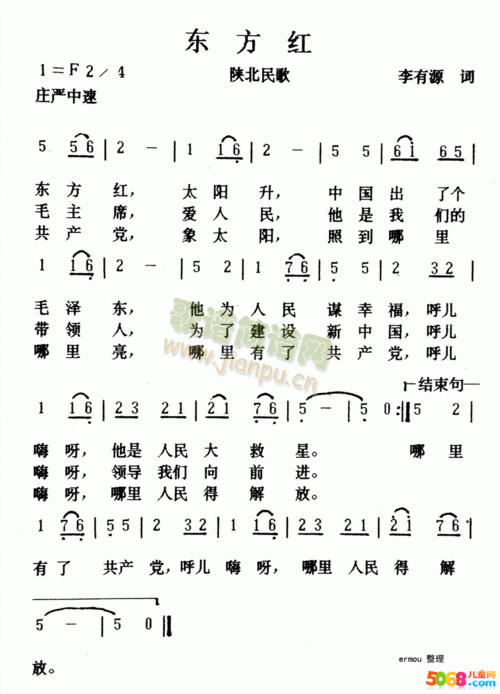 东方红
1=F 2/4 陕北民歌 李有源 词
庄严中速
5 56 | 2 - | 1 16 | 2 - | 5 5 | 61 65 |
东 方 红， 太 阳 升， 中 国 出 了个
毛 主 席， 爱 人 民， 他 是 我 们的
共 产 党， 象 太 阳， 照 到 哪 里
1 16 | 2 - | 5 2 | 1 76 | 5 5 | 2 32 |
毛 泽 东， 他 为 人 民 谋 幸 福，呼儿
带 领 人， 为 了 建 设 新 中 国，呼儿
哪 里 亮， 哪 里 有 了 共 产 党，呼儿
结束句
1 16 | 23 21 | 21 76 | 5 - | 5 0 :| 5 2 |
嗨 呀， 他是 人民 大 救 星。 哪 里
嗨 呀， 领导 我们 向 前 进。
嗨 呀， 哪里 人民 得 解 放。
1 76 | 55 | 2 32 | 1 16 | 23 21 | 21 76 |
有 了 共产 党，呼儿 嗨 呀，哪里 人民 得 解
5 - | 5 - | 5 0 ||
放。
歌谱简谱网
www.jianpu.cn
ermou 整理
5068儿童网
www.5068.com